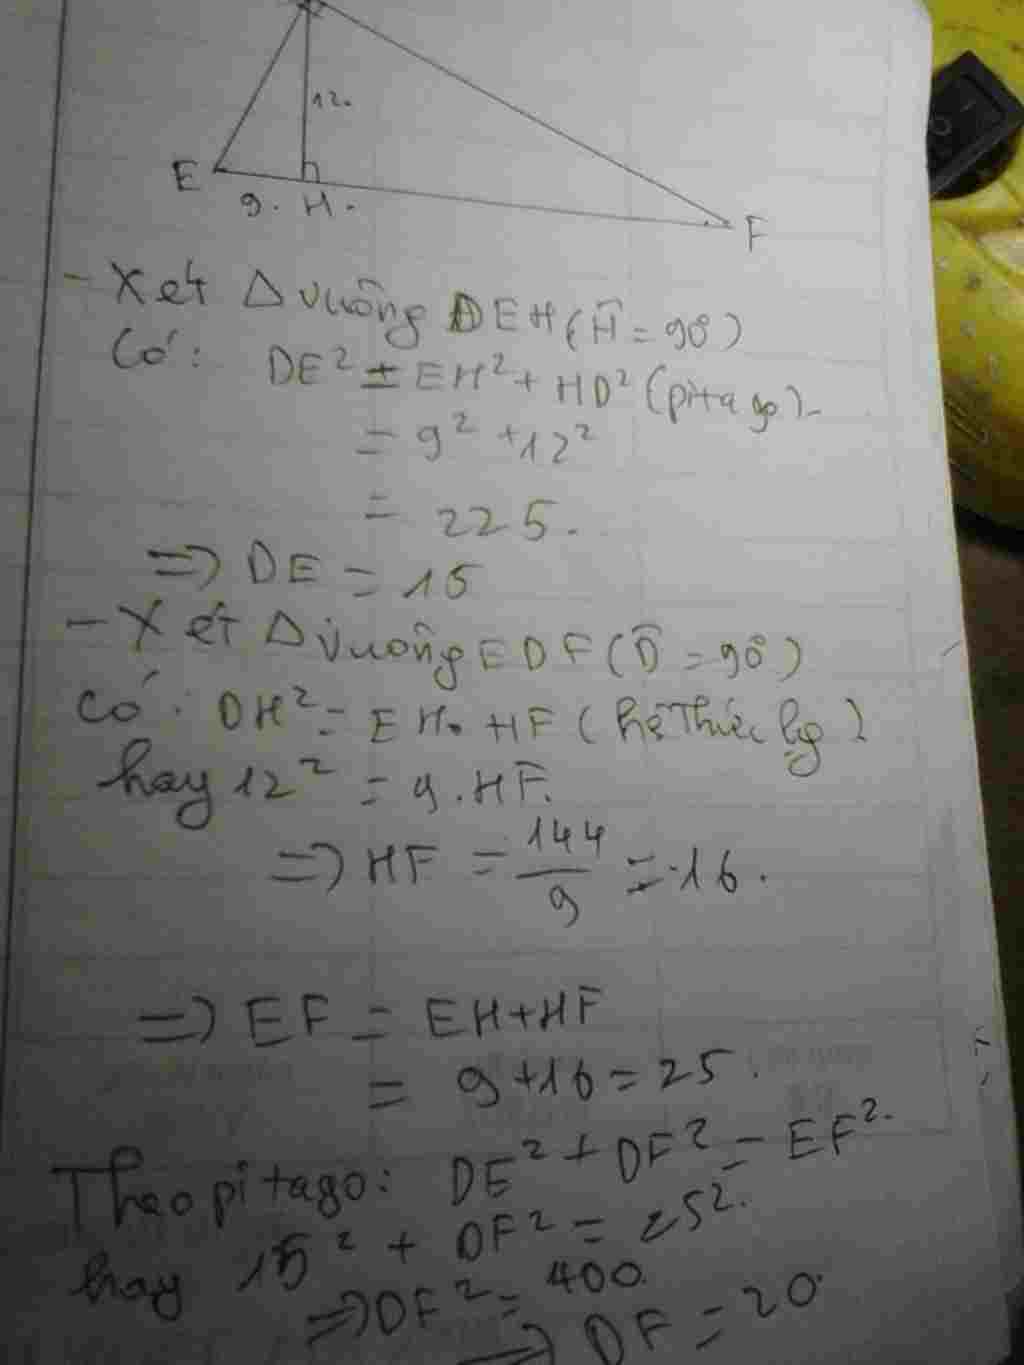 12.
E
9. H.
F
- Xét Δ vuông DEH (Ĥ = 90°)
Có: DE² = EH² + HD² (pitago).
= 9² + 12²
= 225.
=> DE = 15
- Xét Δ vuông EDF (D̂ = 90°)
Có: DH² = EH. HF (hệ thức lg)
hay 12² = 9.HF.
=> HF = 144/9 = 16.
=> EF = EH+HF
= 9+16 = 25.
Theo pitago: DE² + DF² = EF².
hay 15² + DF² = 25².
=> DF² = 400.
=> DF = 20